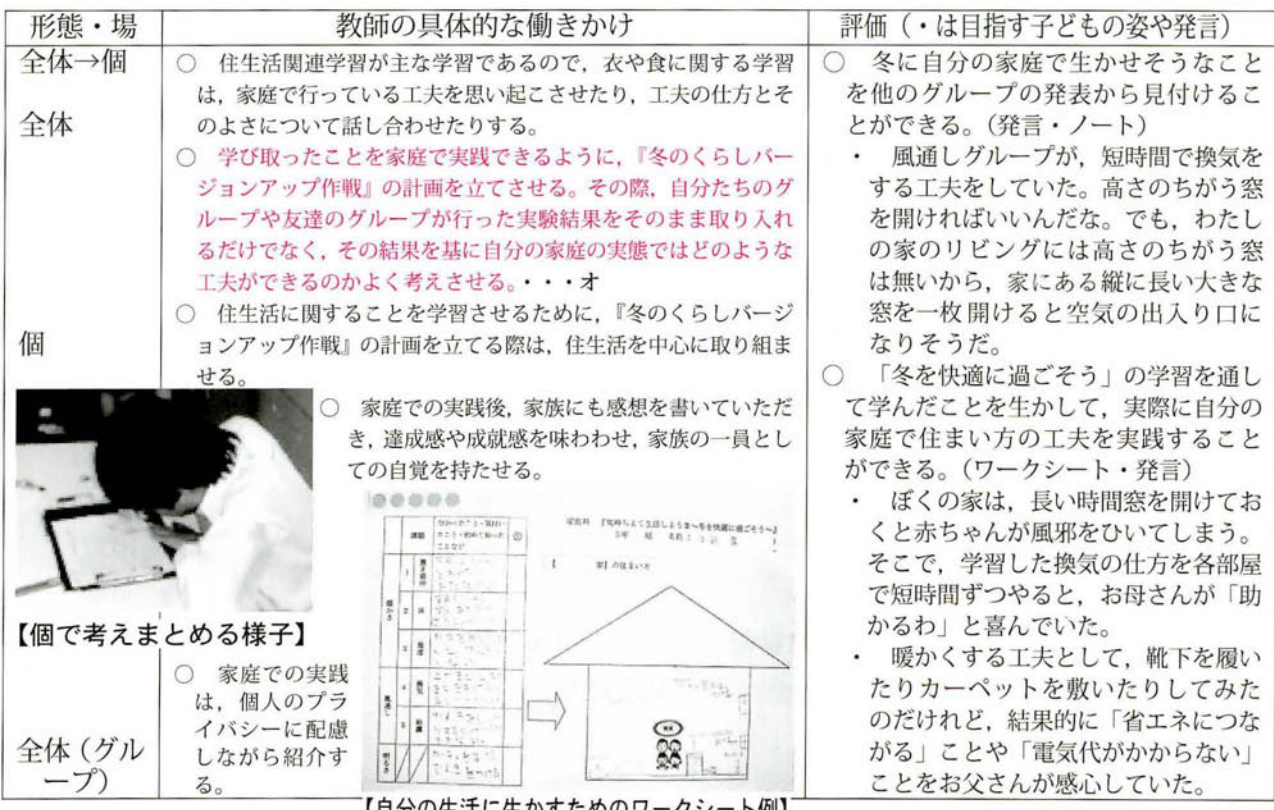 形態・場
教師の具体的な働きかけ
評価（・は目指す子どもの姿や発言）
全体→個
全体
個
【個で考えまとめる様子】
全体（グル
ープ）
○　住生活関連学習が主な学習であるので，衣や食に関する学習
は，家庭で行っている工夫を思い起こさせたり，工夫の仕方とそ
のよさについて話し合わせたりする。
○　学び取ったことを家庭で実践できるように，『冬のくらしバー
ジョンアップ作戦』の計画を立てさせる。その際，自分たちのグ
ループや友達のグループが行った実験結果をそのまま取り入れ
るだけでなく，その結果を基に自分の家庭の実態ではどのような
工夫ができるのかよく考えさせる。・・・オ
○　住生活に関することを学習させるために，『冬のくらしバージ
ョンアップ作戦』の計画を立てる際は，住生活を中心に取り組ま
せる。
○　家庭での実践後，家族にも感想を書いていただ
き，達成感や成就感を味わわせ，家族の一員とし
ての自覚を持たせる。
○　家庭での実践
は，個人のプラ
イバシーに配慮
しながら紹介す
る。
課題
暖かさ
1
2
床
3
4
換気
5
風通し
明るさ
家庭科　『気持ちよく生活しようⅡ～冬を快適に過ごそう～』
5年　組　名前
【　　　家】の住まい方
【自分の生活に生かすためのワークシート例】
○　冬に自分の家庭で生かせそうなこと
を他のグループの発表から見付けるこ
とができる。（発言・ノート）
・　風通しグループが，短時間で換気を
する工夫をしていた。高さのちがう窓
を開ければいいんだな。でも，わたし
の家のリビングには高さのちがう窓
は無いから，家にある縦に長い大きな
窓を一枚開けると空気の出入り口に
なりそうだ。
○　「冬を快適に過ごそう」の学習を通し
て学んだことを生かして，実際に自分の
家庭で住まい方の工夫を実践すること
ができる。（ワークシート・発言）
・　ぼくの家は，長い時間窓を開けてお
くと赤ちゃんが風邪をひいてしまう。
そこで，学習した換気の仕方を各部屋
で短時間ずつやると，お母さんが「助
かるわ」と喜んでいた。
・　暖かくする工夫として，靴下を履い
たりカーペットを敷いたりしてみた
のだけれど，結果的に「省エネにつな
がる」ことや「電気代がかからない」
ことをお父さんが感心していた。